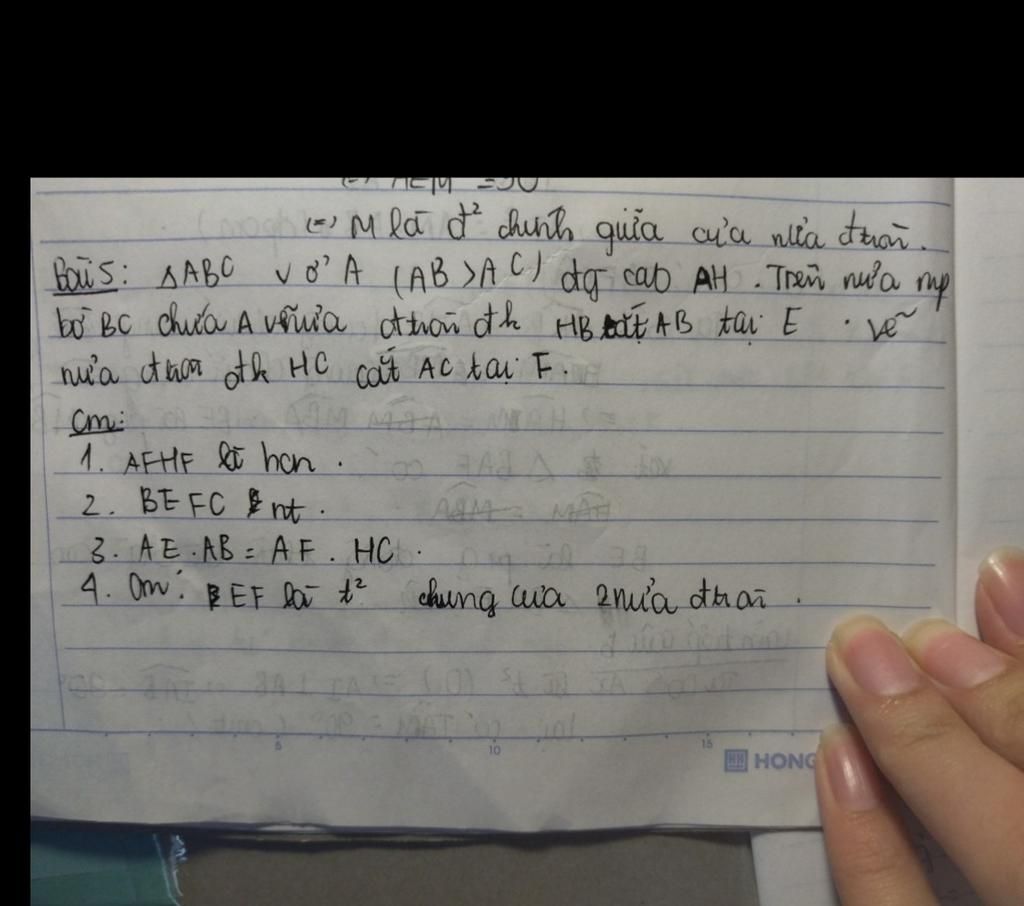 (=) M là đ² chính giữa của nửa đtròn.
Bài 5: △ABC v ở A (AB > AC) đg cao AH. Trên nửa mp
bờ BC chứa A vẽ nửa đtròn đk HB cắt AB tại E. vẽ
nửa đtròn đk HC cắt AC tại F.
Cm:
1. AFHF là hcn.
2. BEFC nt.
3. AE.AB = AF.HC.
4. Cm: EF là t² chung của 2 nửa đtròn.
5 10 15
HONG